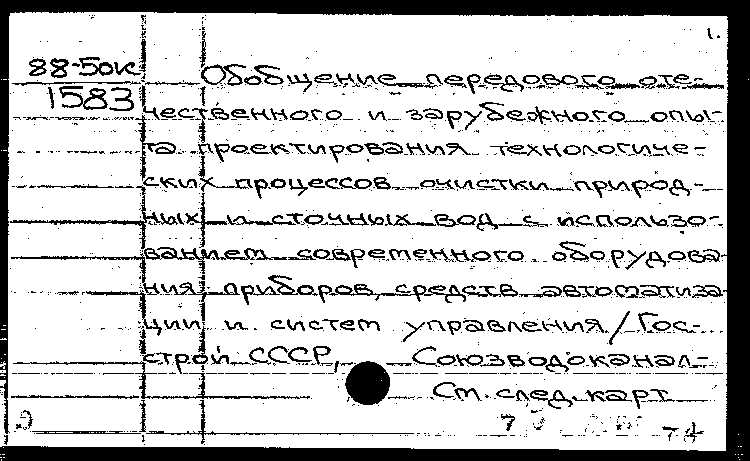 1.
88-50к Обобщение передового оте-
1583 чественного и зарубежного опы-
та проектирования технологиче-
ских процессов очистки природ-
ных и сточных вод с использо-
ванием современного оборудова-
ния, приборов, средств автоматиза-
ции и систем управления / Гос-
строй СССР, Союзводоканал-
См. след. карт